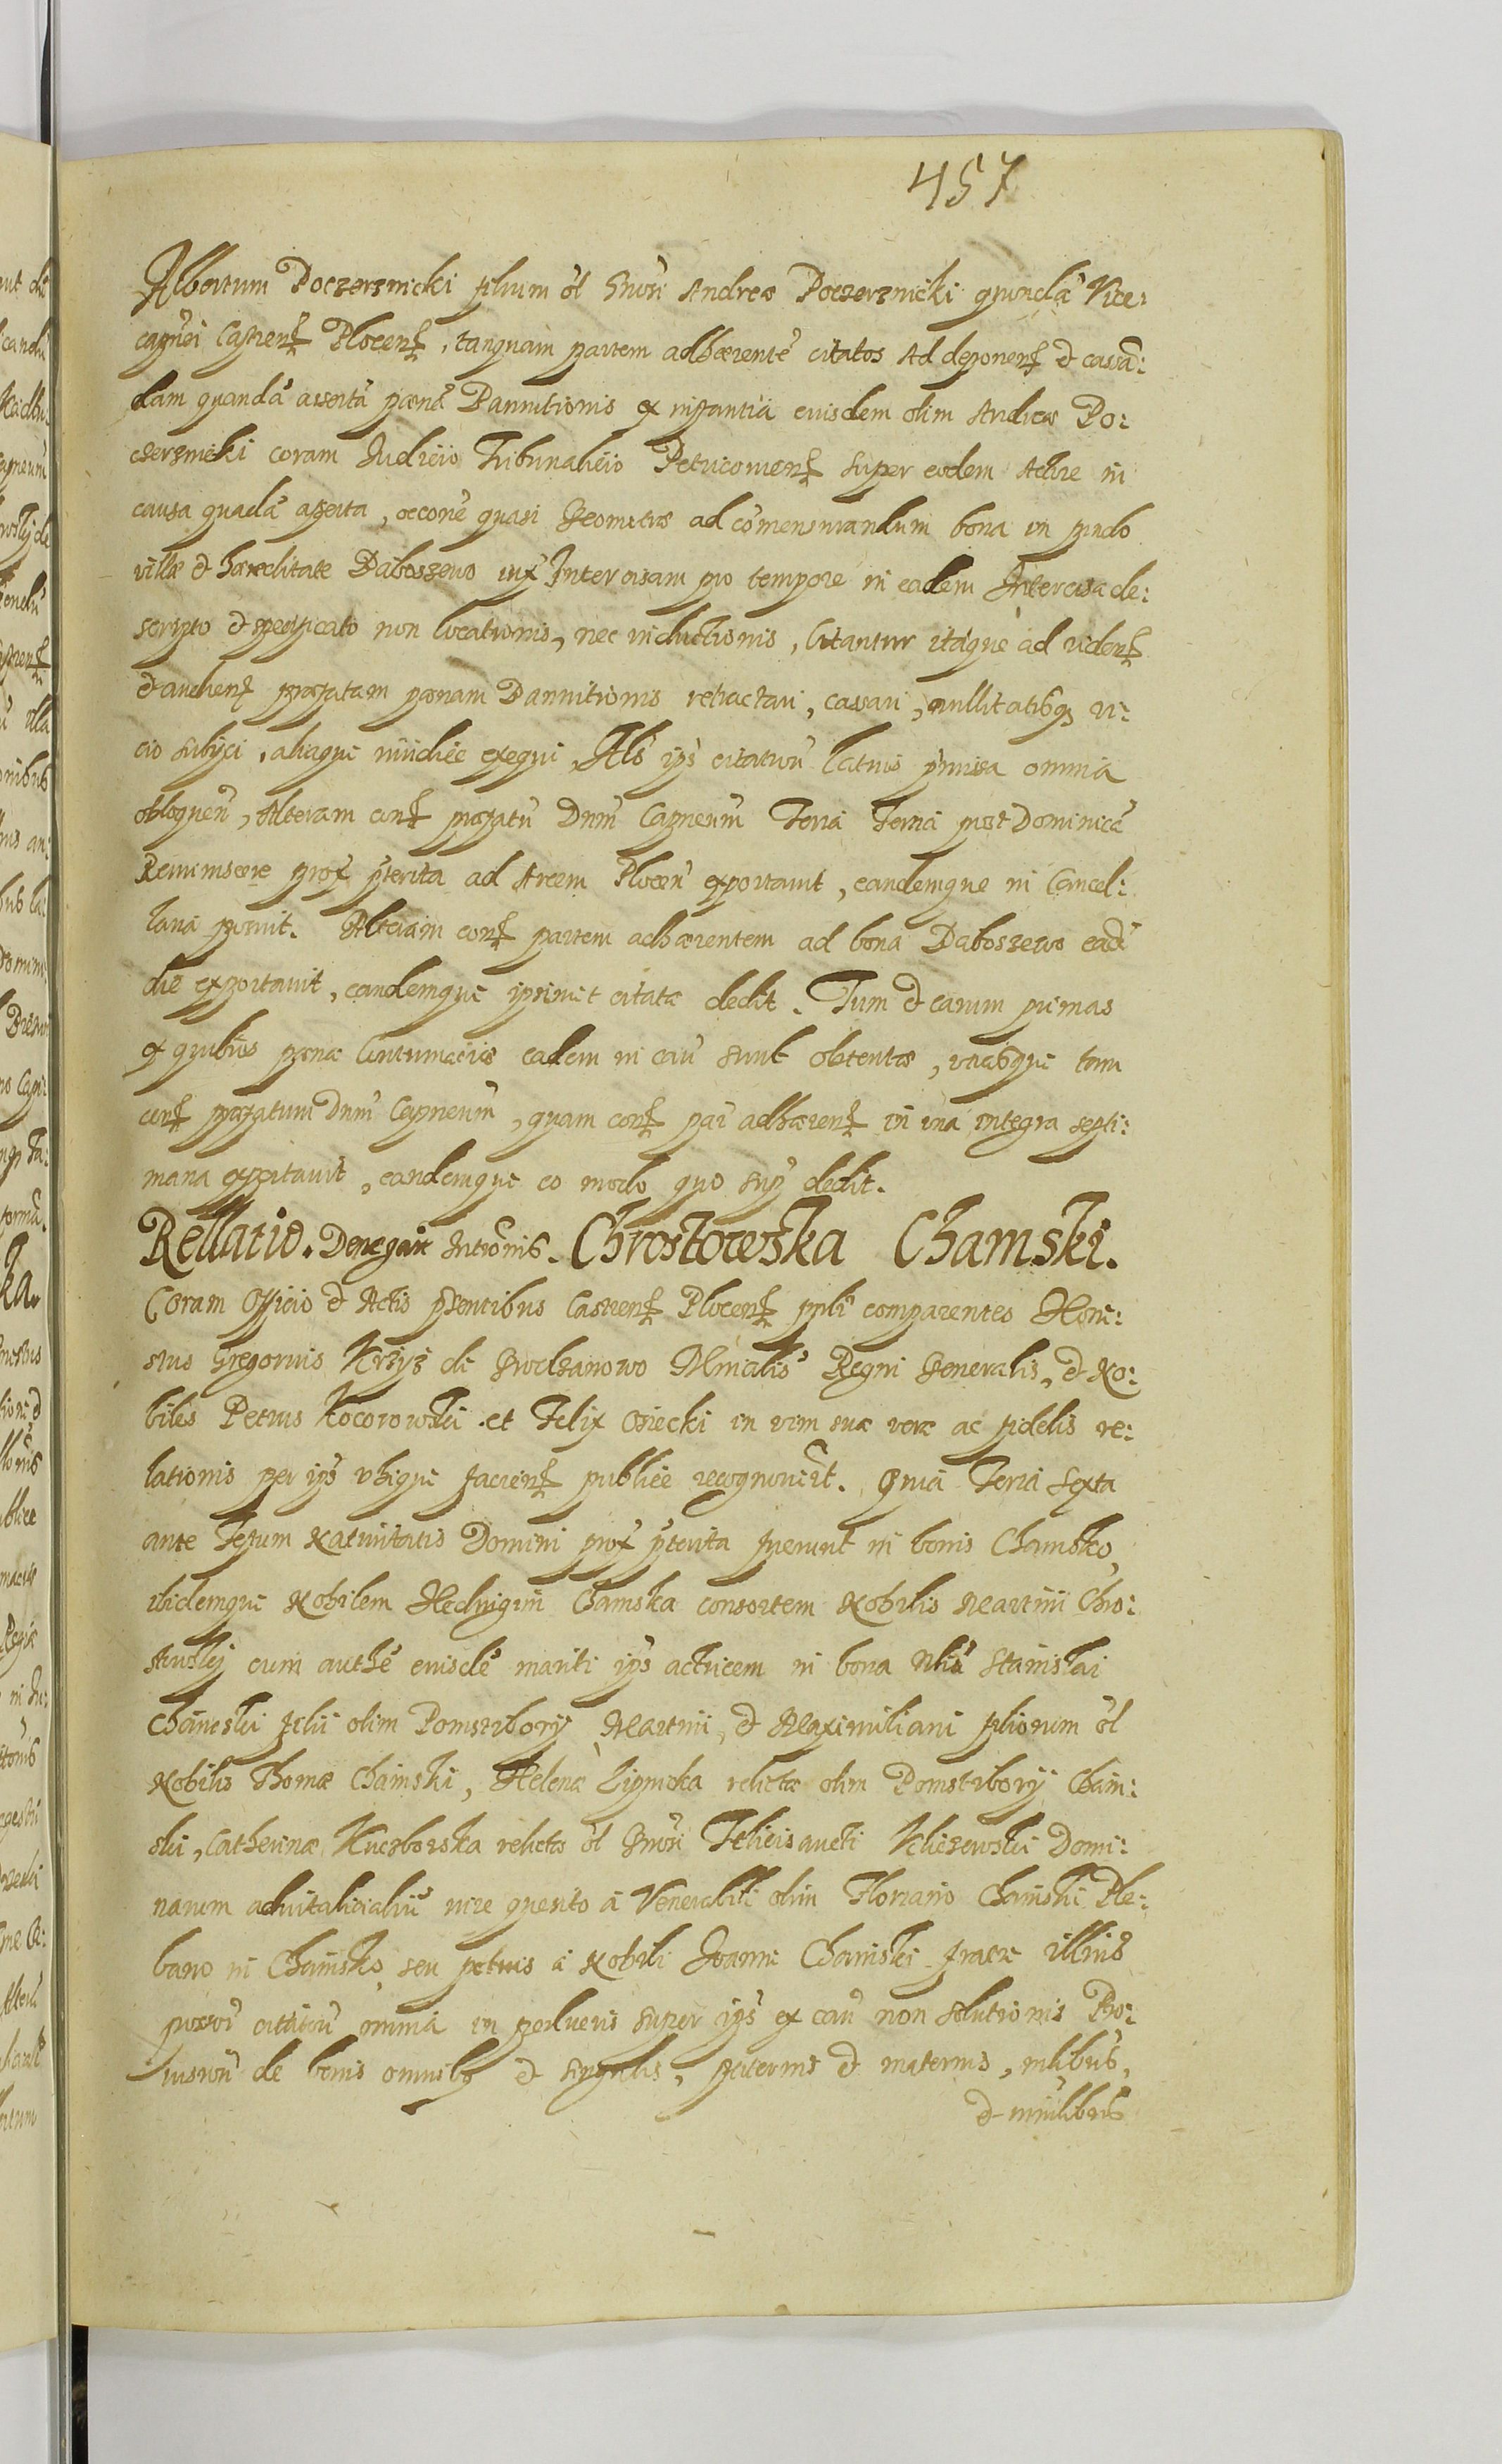 457
Albertum Poczerznicki filium ol Gnosi Andreæ Poczerznicki quondā Vice:
capnei Castren Plocen, tanquam partem adhærentē citatos Ad deponen et cassā:
dam quandā assertā pænā Bannitionis ex instantia eiusdem olim Andreæ Po:
czerznicki coram Iudicio Tribunalicio Petricovien super eodem Actore in
causa quadā asserta, occone quasi Geometræ ad cōmensurandum bona in fundo
villæ et hæreditate Daboszewo iux Intercisam pro tempore in eadem Intercisa de:
scripto et specificato non locationis, nec inductionis, Citantur itaque ad viden
et audien præfatam pænam Bannitionis retractari, cassari, nullitatibq vi:
cio subijci, aliaque iuridice exequi, Als ips citatiōn latius pmissa omnia
obloquen, Alteram con præfatū Dnm Capneum Feria Terna post Dominicā
Reminiscere prox pterita ad Arcem Plocen exportavit, eandemque in Cancel:
laria posuit. Alteram con partem adhærentem ad bona Daboszewo eadē
die exportavit, eandemque ipsimet citatæ dedit. Tum et earum primas
ex quibus pænæ Contumaciæ eadem in cau sunt obtentæ, utrasque tam
con præfatum Dnm Capneum, quam con par adhæren in una integra septi:
mana exportavit, eandemque eo modo quo sup dedit.
Rellatio. Denegatæ Intromis. Chrostowska Chamski.
Coram Officio et Actis psentibus Castren Plocen psnlr comparentes Hone:
stus Gregorius Krzyz de Grodzanowo Mnialis Regni Generalis, et No:
biles Petrus Kocorowski et Felix Osiecki in vim suæ veræ ac fidelis re:
lationis per ips ubique facien publice recognoverūt. Quia Feria Sexta
ante Festum Nativitatis Domini prox pterita fuerunt in bonis Chamsko,
ibidemque Nobilem Hedvigim Chamska consortem Nobilis Martini Chro:
stowskij cum authē eiusdē mariti ips actricem in bona Nliū Stanislai
Chamski filii olim Pomstibory Martini, et Maximiliani filiorum ol
Nobilis Thomæ Chamski, Helenæ Lipnicka relictæ olim Pomstiborij Cham:
ski, Catherinæ Kuczborska relictæ ol Gnosi Felicis aucti Kliczewski Domi:
narum advitalicialiū iure quesito a Venerabili olim Floriano Chamski Ple:
bano in Chamsko seu potius a Nobili Joanne Chamski fratre illius
possos citatioū omnia in perlucris super ips ex cau non solutionis Pro:
visioū de bonis omnibq et singulis, paternis et maternis, mlibus,
et immlibus